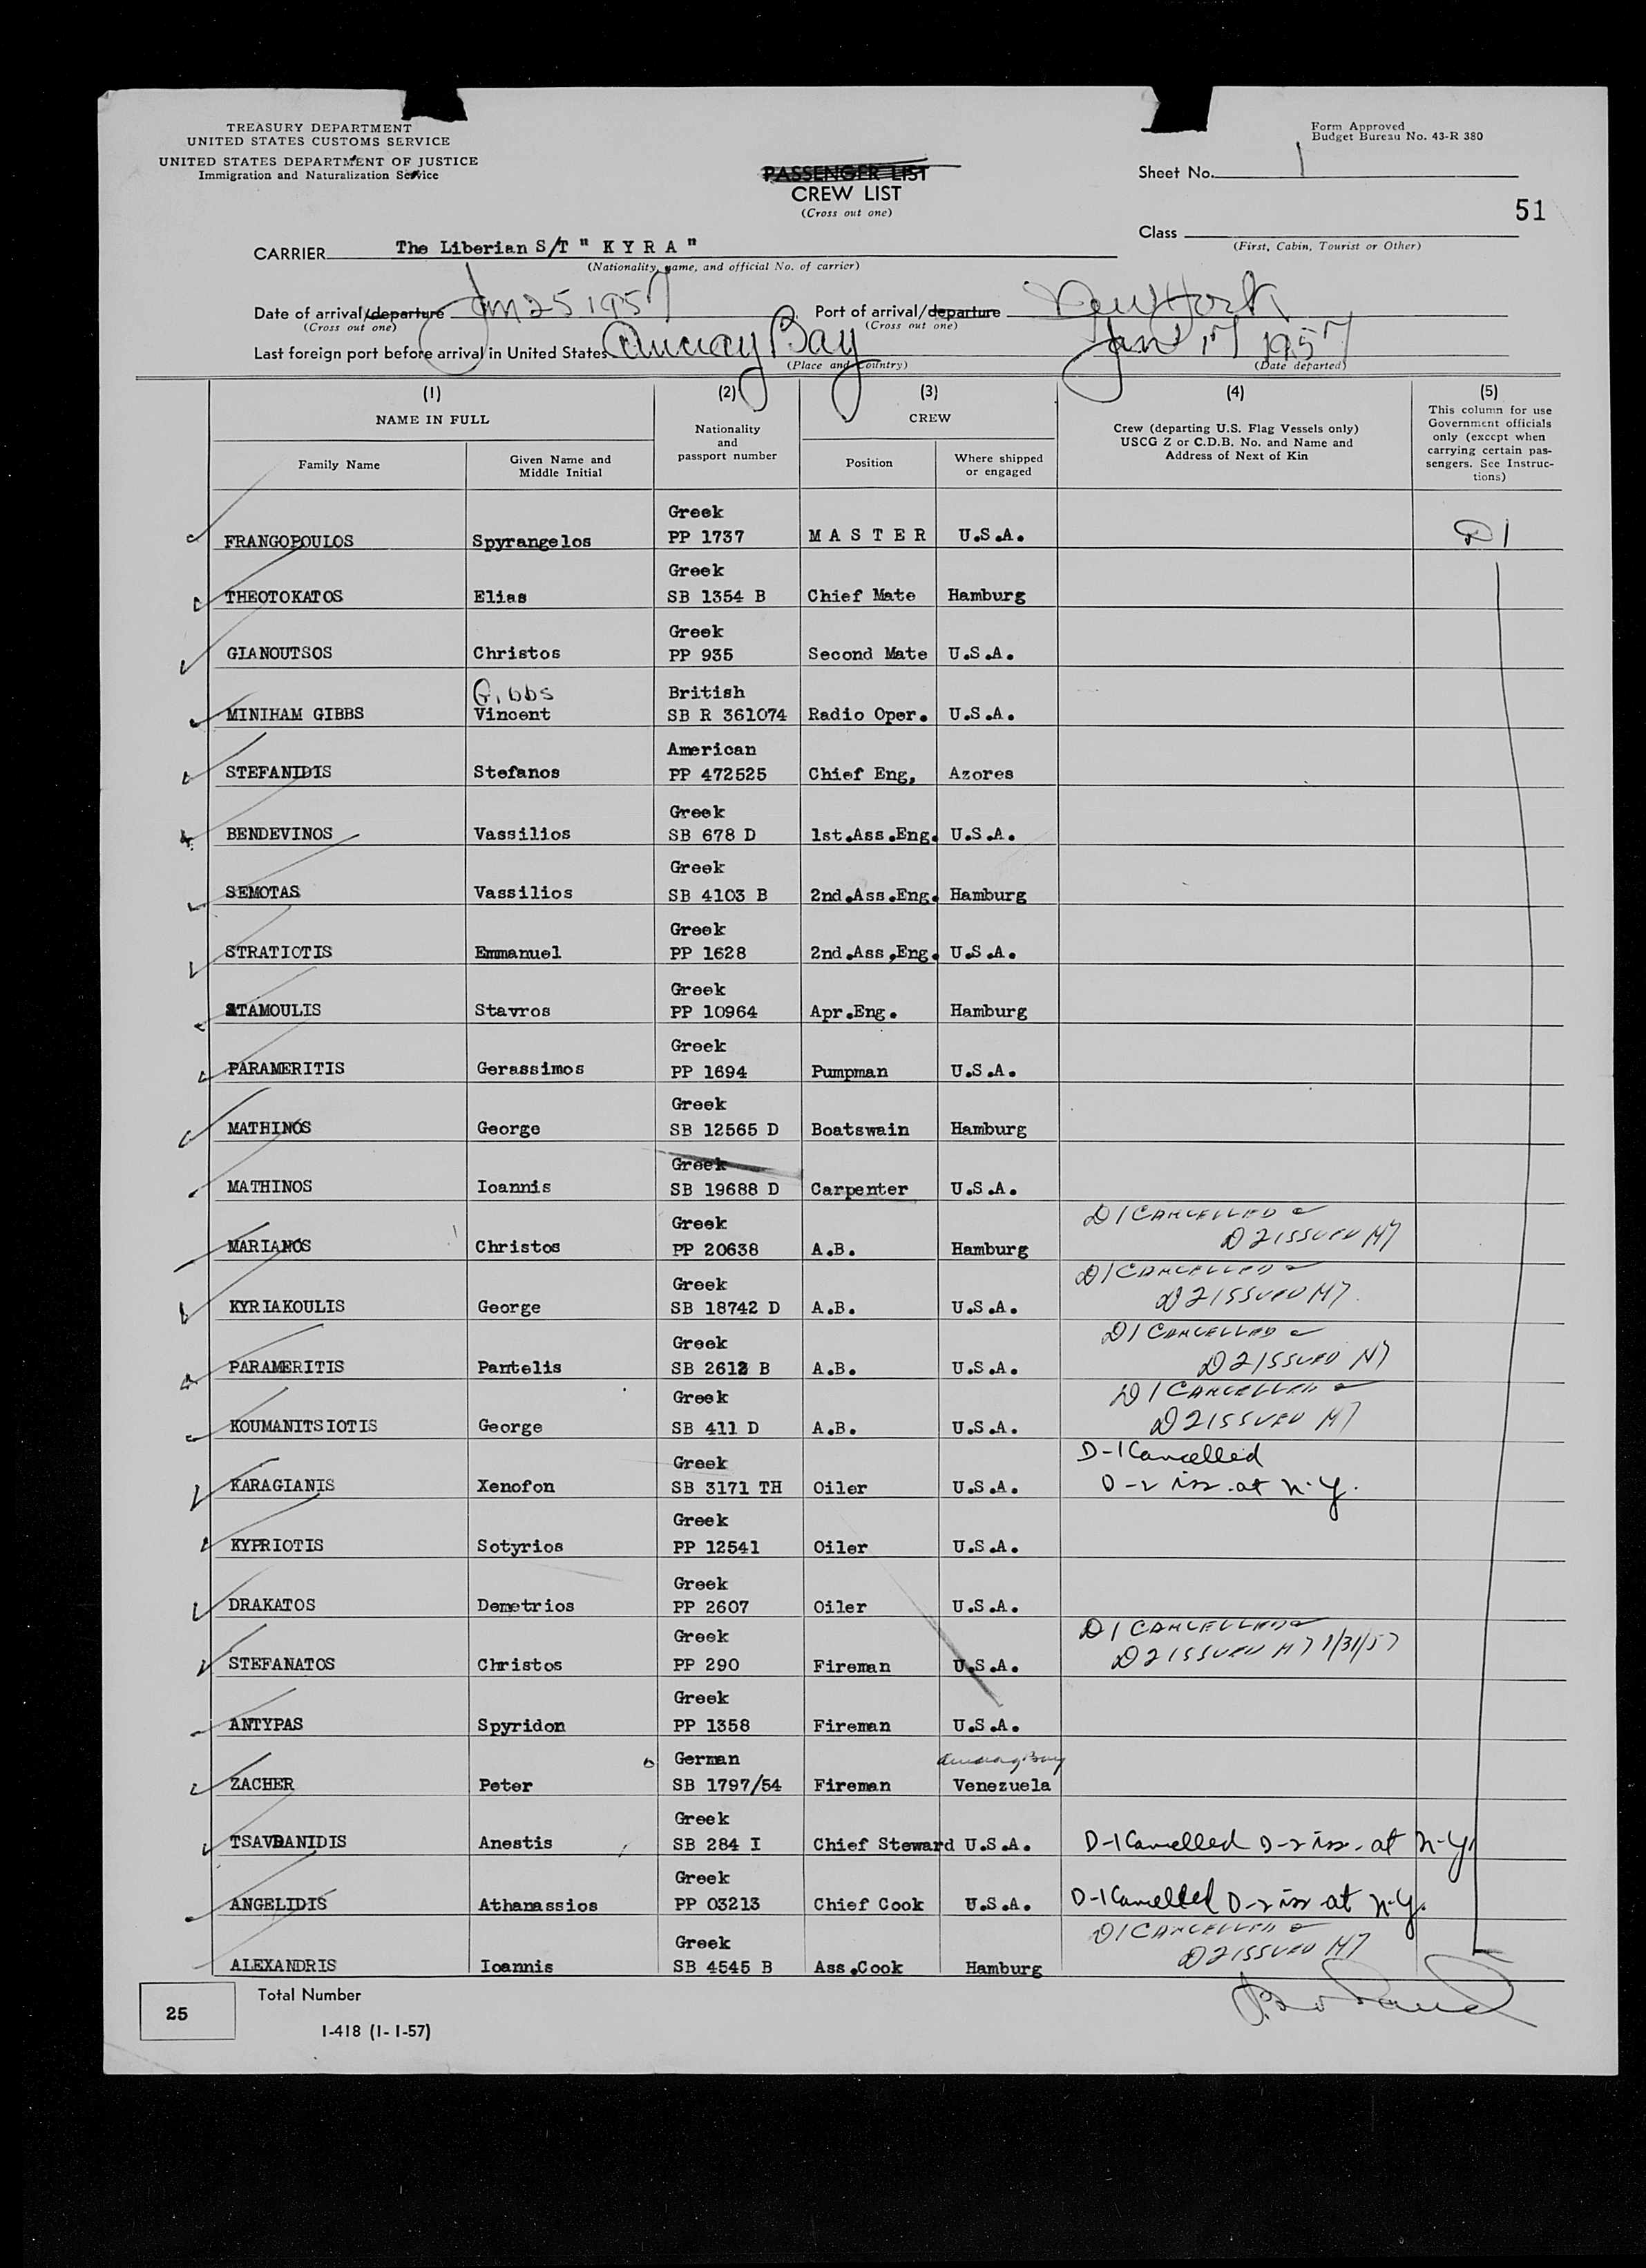 TREASURY DEPARTMENT
UNITED STATES CUSTOMS SERVICE
UNITED STATES DEPARTMENT OF JUSTICE
Immigration and Naturalization Service
Form Approved
Budget Bureau No. 43-R 380
PASSENGER LIST
CREW LIST
(Cross out one)
Sheet No. 1
51
Class
(First, Cabin, Tourist or Other)
CARRIER The Liberian S/T " K Y R A "
(Nationality, name, and official No. of carrier)
Date of arrival/departure Jan 25 1957 Port of arrival/departure New York
(Cross out one) (Cross out one)
Last foreign port before arrival in United States Amuay Bay Jan 17 1957
(Place and Country) (Date departed)
(1) (2) (3) (4) (5)
NAME IN FULL
Family Name
Given Name and Middle Initial
Nationality and passport number
CREW
Position
Where shipped or engaged
Crew (departing U.S. Flag Vessels only) USCG Z or C.D.B. No. and Name and Address of Next of Kin
This column for use Government officials only (except when carrying certain passengers. See Instructions)
Greek
FRANGOPOULOS Spyrangelos PP 1737 M A S T E R U.S.A. D 1
Greek
THEOTOKATOS Elias SB 1354 B Chief Mate Hamburg
Greek
GIANOUTSOS Christos PP 935 Second Mate U.S.A.
Gibbs British
MINIHAM GIBBS Vincent SB R 361074 Radio Oper. U.S.A.
American
STEFANIDIS Stefanos PP 472525 Chief Eng, Azores
Greek
BENDEVINOS Vassilios SB 678 D 1st.Ass.Eng. U.S.A.
Greek
SEMOTAS Vassilios SB 4103 B 2nd.Ass.Eng. Hamburg
Greek
STRATIOTIS Emmanuel PP 1628 2nd.Ass,Eng. U.S.A.
Greek
STAMOULIS Stavros PP 10964 Apr.Eng. Hamburg
Greek
PARAMERITIS Gerassimos PP 1694 Pumpman U.S.A.
Greek
MATHINOS George SB 12565 D Boatswain Hamburg
Greek
MATHINOS Ioannis SB 19688 D Carpenter U.S.A.
Greek D1 CANCELLED &
MARIANOS Christos PP 20638 A.B. Hamburg D2 ISSUED NY
Greek D1 CANCELLED &
KYRIAKOULIS George SB 18742 D A.B. U.S.A. D2 ISSUED NY.
Greek D1 CANCELLED &
PARAMERITIS Pantelis SB 2612 B A.B. U.S.A. D2 ISSUED NY
Greek D1 CANCELLED &
KOUMANITSIOTIS George SB 411 D A.B. U.S.A. D2 ISSUED NY
Greek D-1 Cancelled
KARAGIANIS Xenofon SB 3171 TH Oiler U.S.A. D-2 iss. at N.Y.
Greek
KYPRIOTIS Sotyrios PP 12541 Oiler U.S.A.
Greek
DRAKATOS Demetrios PP 2607 Oiler U.S.A.
Greek D1 CANCELLED &
STEFANATOS Christos PP 290 Fireman U.S.A. D2 ISSUED NY 1/31/57
Greek
ANTYPAS Spyridon PP 1358 Fireman U.S.A.
German Amuay Bay
ZACHER Peter SB 1797/54 Fireman Venezuela
Greek
TSAVDANIDIS Anestis SB 284 I Chief Steward U.S.A. D-1 Cancelled D-2 iss. at N.Y.
Greek
ANGELIDIS Athanassios PP 03213 Chief Cook U.S.A. D-1 Cancelled D-2 iss at N.Y.
Greek D1 CANCELLED &
ALEXANDRIS Ioannis SB 4545 B Ass.Cook Hamburg D2 ISSUED NY
25 Total Number
I-418 (1-1-57)